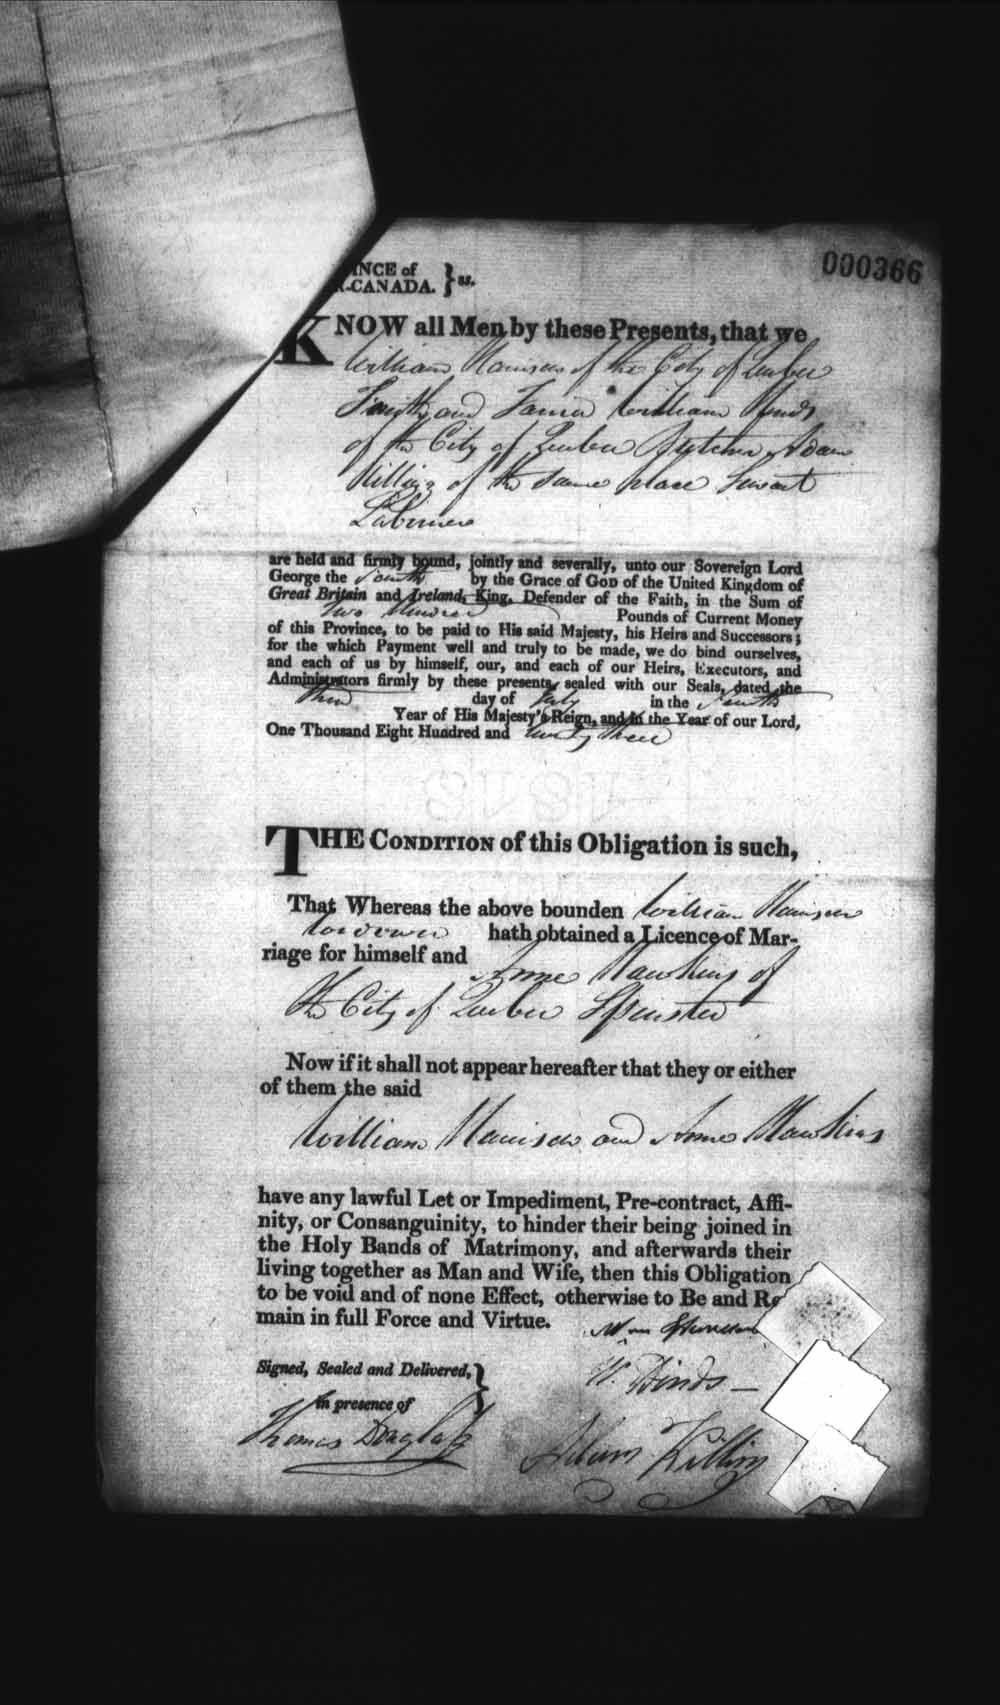 000366
INCE of
-CANADA. } ss.
KNOW all Men by these Presents, that we
William Harrison of the City of Quebec
Smith and Farrier William Hinds
of the City of Quebec Butcher Adam
Killing of the same place
Labourer
are held and firmly bound, jointly and severally, unto our Sovereign Lord
George the Fourth by the Grace of GOD of the United Kingdom of
Great Britain and Ireland, King, Defender of the Faith, in the Sum of
Two Hundred Pounds of Current Money
of this Province, to be paid to His said Majesty, his Heirs and Successors;
for the which Payment well and truly to be made, we do bind ourselves,
and each of us by himself, our, and each of our Heirs, Executors, and
Administrators firmly by these presents, sealed with our Seals, dated the
day of July in the Fourth
Year of His Majesty's Reign, and in the Year of our Lord,
One Thousand Eight Hundred and twenty three
THE CONDITION of this Obligation is such,
That Whereas the above bounden William Harrison
Widower hath obtained a Licence of Mar-
riage for himself and
Anne Hawkins of
the City of Quebec Spinster
Now if it shall not appear hereafter that they or either
of them the said
William Harrison and Anne Hawkins
have any lawful Let or Impediment, Pre-contract, Affi-
nity, or Consanguinity, to hinder their being joined in
the Holy Bands of Matrimony, and afterwards their
living together as Man and Wife, then this Obligation
to be void and of none Effect, otherwise to Be and Re
main in full Force and Virtue.
Wm
Signed, Sealed and Delivered, }
W. Hinds
in presence of
Thomas Douglass
Adam Killing